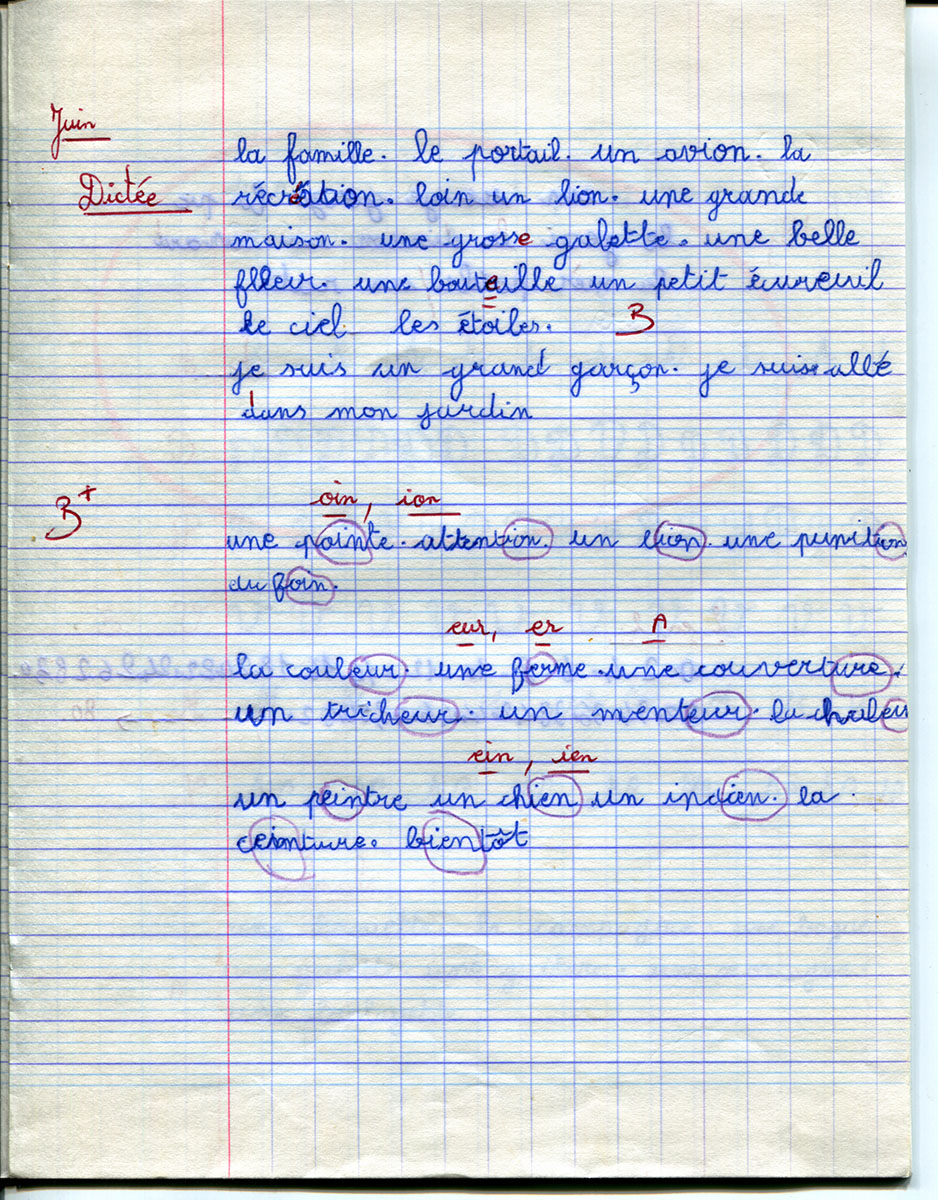 Juin
la famille. le portail. un avion. la
Dictée
récréation. loin un lion. une grande
maison. une grosse galette. une belle
fleur. une bouteille un petit écureuil
le ciel les étoiles. B
je suis un grand garçon. je suis allé
dans mon jardin
B+
oin, ion
une pointe. attention un lion. une punition
du foin.
eur, er A
la couleur. une ferme. une couverture.
un tricheur. un menteur. la chaleu
ein, ien
un peintre un chien un indien. la
ceinture. bientôt